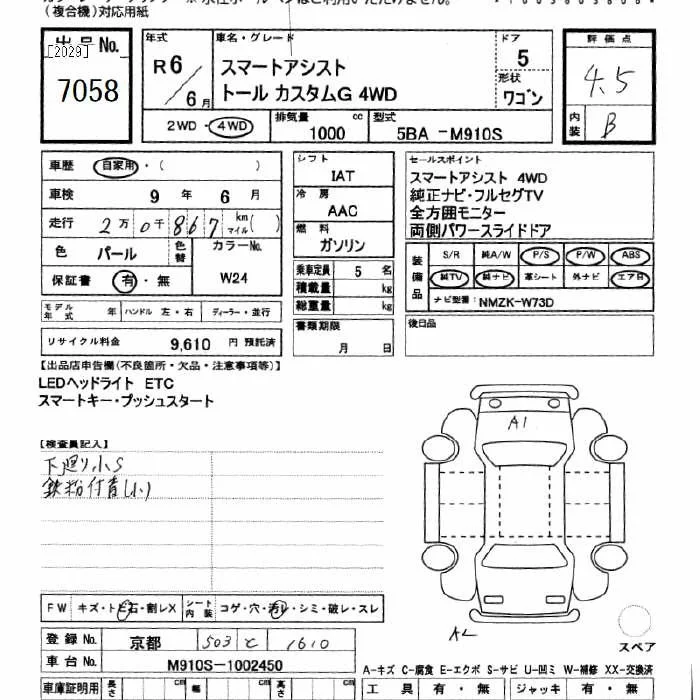 (複合機)対応用紙
出品No.
[2029]
7058
年式 R6/6月
車名・グレード
スマートアシスト
トール カスタムG 4WD
ドア 5
形状 ワゴン
評価点 4.5
内装 B
2WD・4WD
排気量 1000 cc
型式 5BA -M910S
車歴 自家用・(　　)
車検 9 年 6 月
走行 2万0千867 km マイル( )
色 パール 色替
カラーNo. W24
保証書 有・無
モデル年式 年 ハンドル 左・右 ディーラー・並行
リサイクル料金 9,610 円 預託済
シフト IAT
冷房 AAC
燃料 ガソリン
乗車定員 5 名
積載量 kg
総重量 kg
書類期限
月 日
セールスポイント
スマートアシスト 4WD
純正ナビ・フルセグTV
全方囲モニター
両側パワースライドドア
装備品
S/R 純A/W P/S P/W ABS
純TV 純ナビ 革シート 外ナビ エアB
ナビ型番: NMZK-W73D
後日品
【出品店申告欄(不良箇所・欠品・注意事項等)】
LEDヘッドライト ETC
スマートキー・プッシュスタート
【検査員記入】
下廻り小S
鉄粉付着(小)
A1
FW キズ・トビ石・割レX シート内装 コゲ・穴・汚レ・シミ・破レ・スレ
スペア
登録No. 京都 503 と 1610
車台No. M910S-1002450
A-キズ C-腐食 E-エクボ S-サビ U-凹ミ W-補修 XX-交換済
車庫証明用 長さ cm 幅 cm 高さ cm
工具 有・無 ジャッキ 有・無